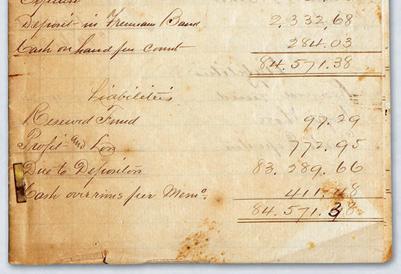 Deposit in Bank 2,332,68
Cash on hand per count 284.03
84.571.38
Liabilities
Reserved Fund 97.29
Profit and Loss 772.95
Due to Depositors 83.289.66
Cash over runs per Memo. 411.48
84.571.38